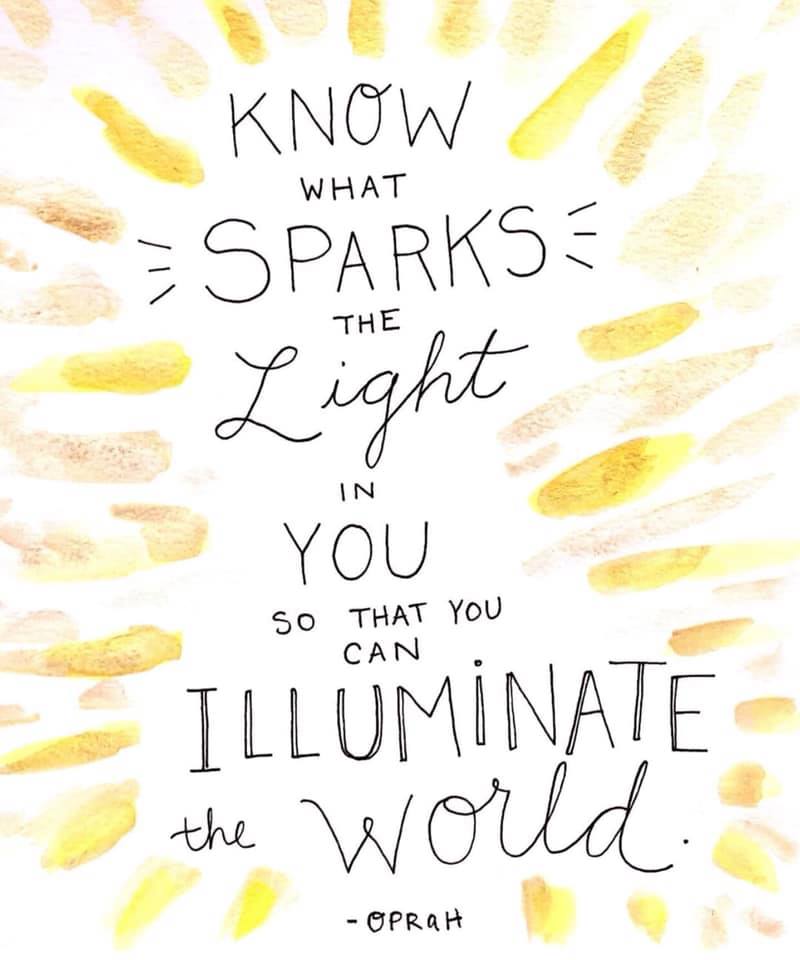 KNOW
WHAT
SPARKS
THE
Light
IN
YOU
SO THAT YOU
CAN
ILLUMiNATE
the World.
- OPRaH